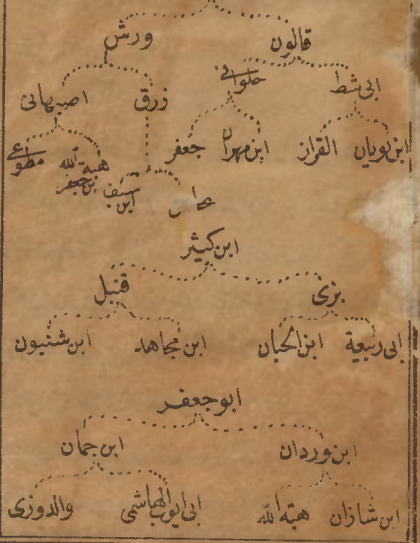 قالون ورش
ابى شط حلوانى زرق اصبهانى
ابن بويان القزاز ابن مهران جعفر ابن سيف هبة الله بن جعفر مطوعى
ابن كثير
بزى قنبل
ابى ربيعة ابن الحبان ابن مجاهد ابن شنبون
ابو جعفر
ابن وردان ابن جمان
ابن شاذان هبة الله ابى ايوب الهاشمى والدوزى